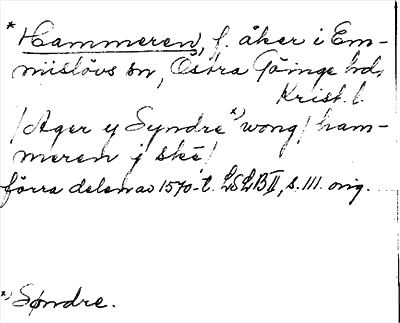 * Hammeren, f. åker i Em-
mislövs sn, Östra Göinge hd,
Krist. l.
/Ager y Syndre *) wong/ ham-
meren j ske/
förra delen av 1570-t. LSLB II, s. 111. orig.
*) Søndre.